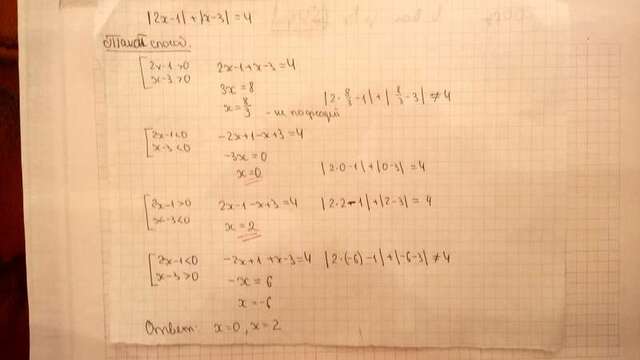 |2x-1|+|x-3|=4
Такой способ.
[2x-1>0 2x-1+x-3=4
x-3>0
3x=8
x=8/3 - не подходит |2·8/3-1|+|8/3-3|≠4
[2x-1<0 -2x+1-x+3=4
x-3<0
-3x=0
x=0 |2·0-1|+|0-3|=4
[2x-1>0 2x-1-x+3=4 |2·2-1|+|2-3|=4
x-3<0
x=2
[2x-1<0 -2x+1+x-3=4 |2·(-6)-1|+|-6-3|≠4
x-3>0
-x=6
x=-6
Ответ: x=0, x=2